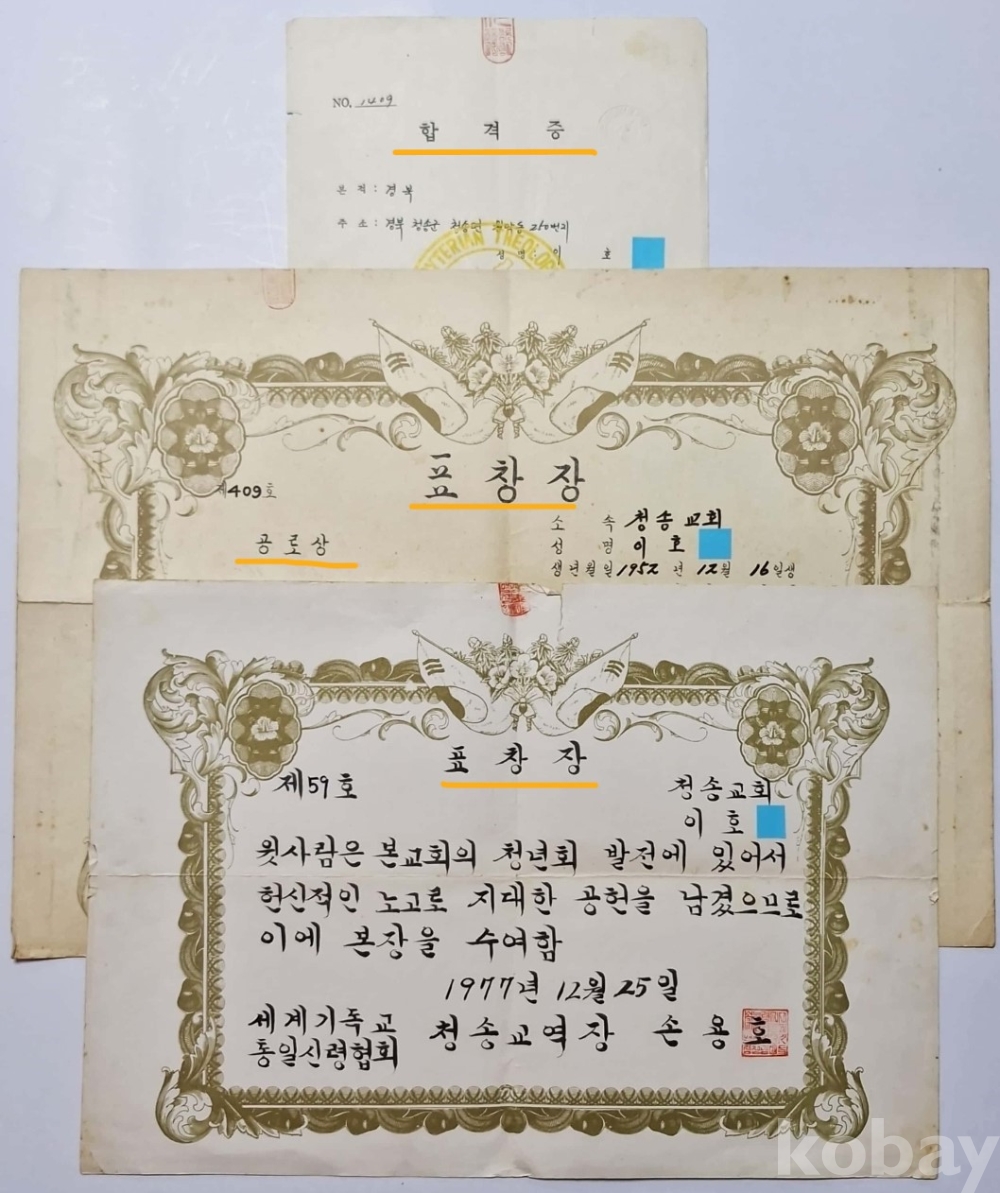 NO. 1409
합 격 증
본 적 : 경 북
주 소 : 경북 청송군 청송면 210번지
성 명 : 이 호
TERIAN THEOLOG
표 창 장
제409호
소 속 청송교회
공 로 상
성 명 이 호
생년월일 1952 년 12월 16일생
표 창 장
제59호
청송교회
이 호
윗사람은 본교회의 청년회 발전에 있어서
헌신적인 노고로 지대한 공헌을 남겼으므로
이에 본장을 수여함
1977년 12월 25일
세계기독교
통일신령협회
청송교역장 손 용 호
kobay